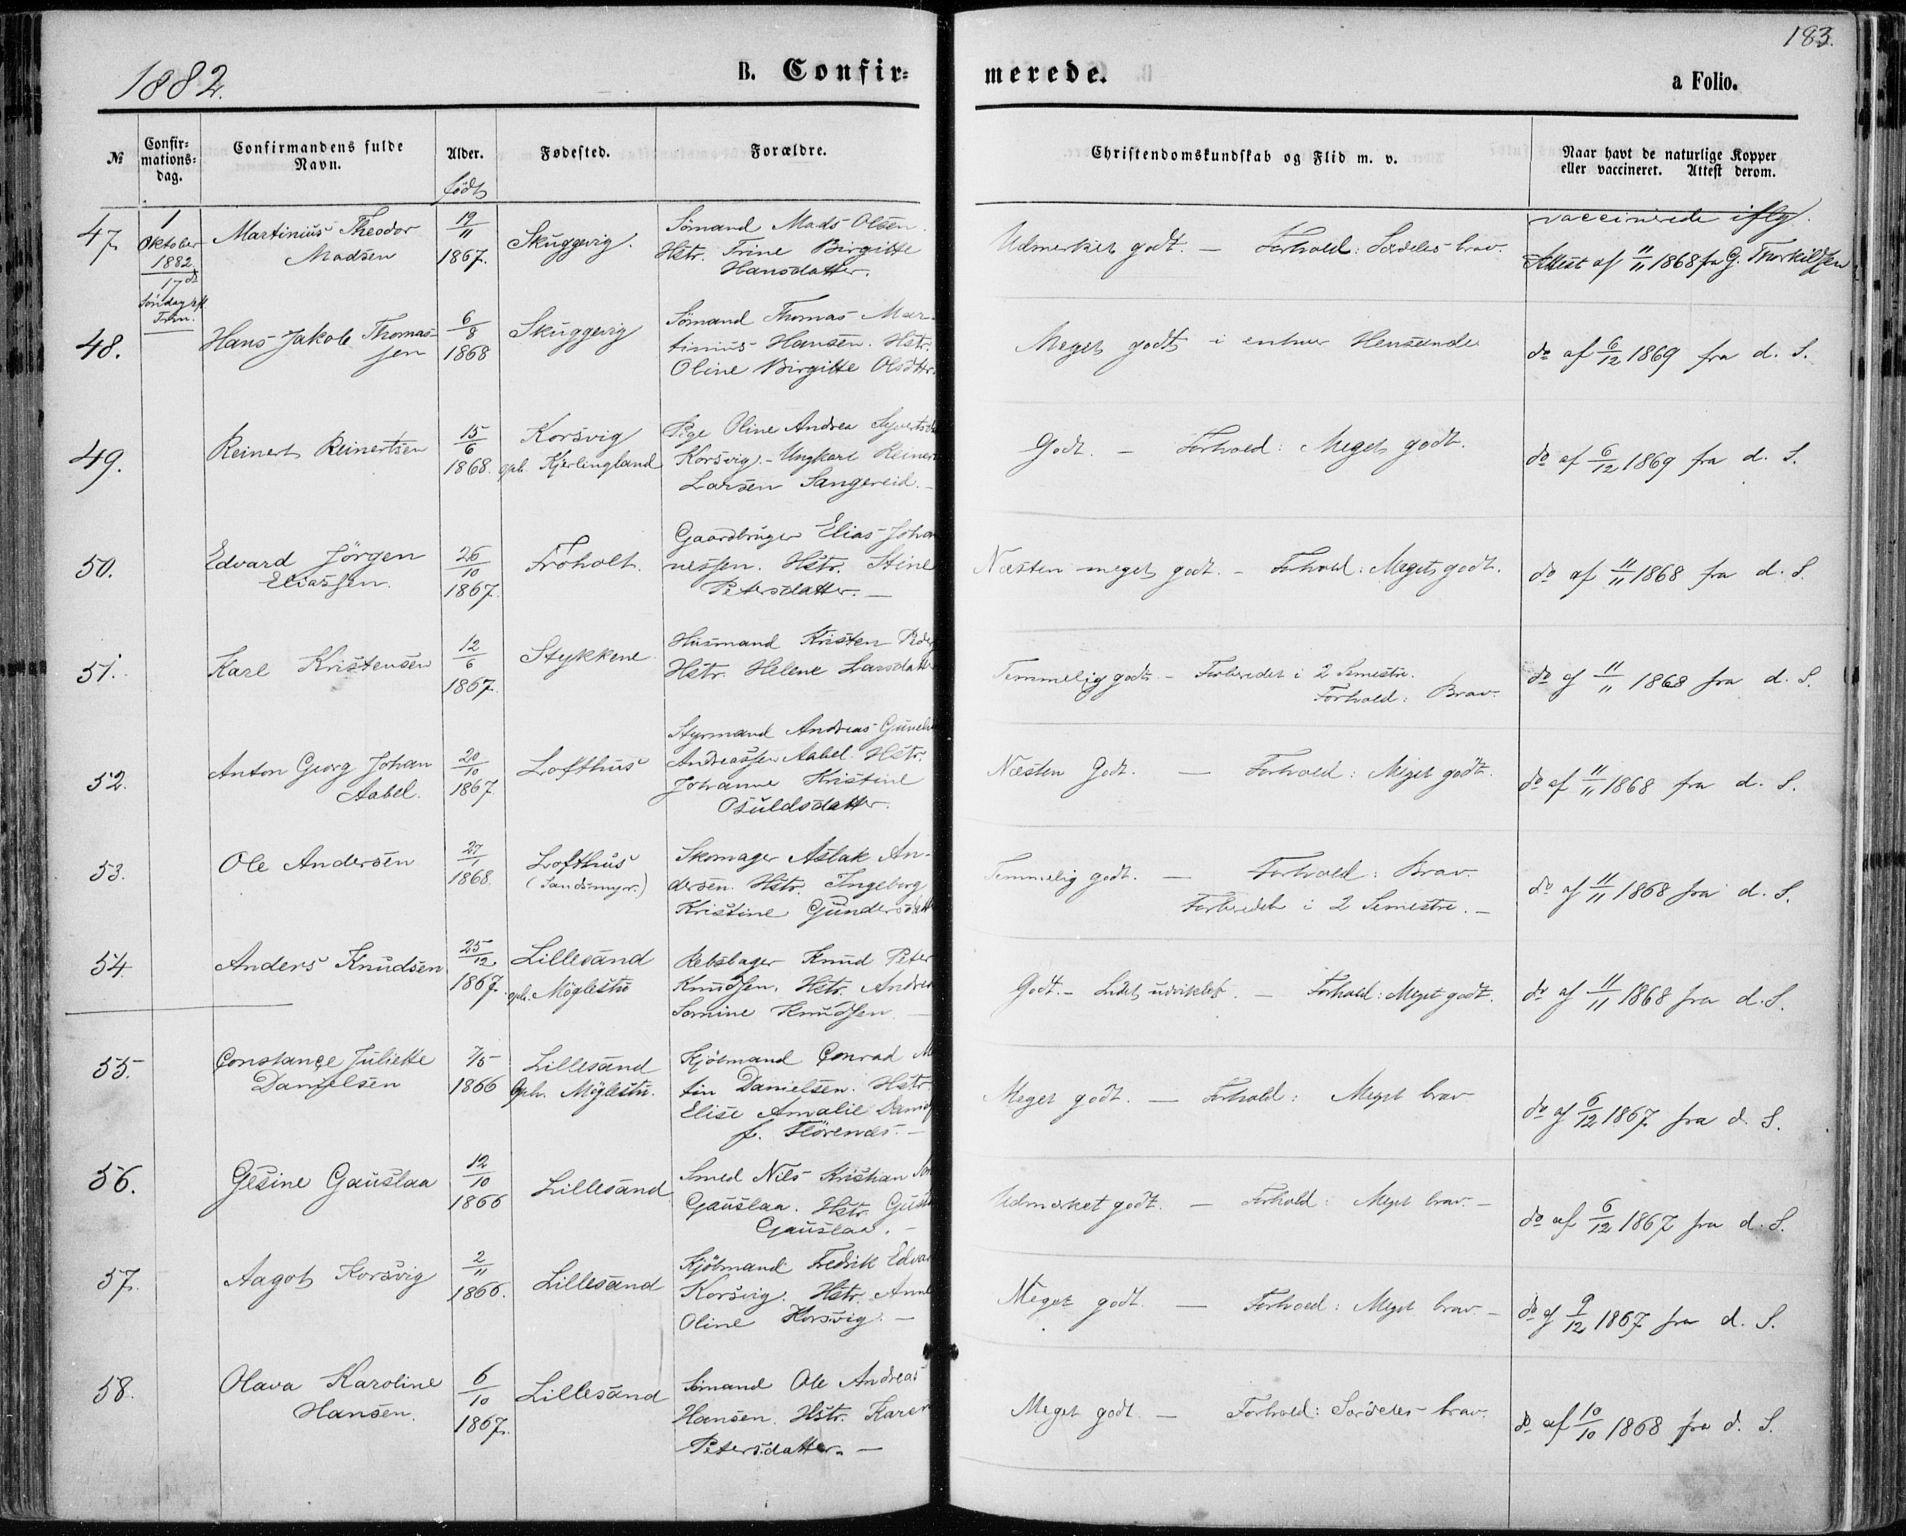 183.
1882.
B. Confir-
merede.
a Folio.
№
Confir-
mations-
dag.
Confirmandens fulde
Navn.
Alder.
født
Fødested.
Forældre.
Christendomskundskab og Flid m. v.
Naar havt de naturlige Kopper
eller vaccineret. Attest derom.
47.
1
Oktober
1882
17de
Søndag eft.
Trin.
Martinius Theodor
Madsen
19/11
1867.
Skuggevig.
Sømand Mads Olsen.
Hstr. Trine Birgitte
Hansdatter.
Udmerket godt. — Forhold: Særdeles brav.
vaccinerede iflg.
Attest af 11/11 1868 fra G. Thorkildsen
48.
Hans Jakob Thomas-
sen
6/8
1868
Skuggevig
Sømand Thomas Mar-
tinius Hansen. Hstr.
Oline Birgitte Olsdttr.
Meget godt i enhver Henseende
do af 6/12 1869 fra d. S.
49.
Reinert Reinertsen
15/6
1868.
Korsvig
oph. Kjerlingland
Pige Oline Andrea
Korsvig - Ungkarl Reinert
Larsen Sangereid. -
Godt. — Forhold: Meget godt.
do af 6/12 1869 fra d. S.
50.
Edvard Jörgen
Eliassen.
26/10
1867.
Froholt.
Gaardbruger Elias Johan
nessen. Hstr. Stine
Petersdatter. —
Næsten meget godt. - Forhold: Meget godt.
do af 11/11 1868 fra d. S.
51.
Karl Kristensen
12/6
1867.
Stykkene
Husmand Kristen
Hstr. Helene Larsdatt
Temmelig godt - Forberedet i 2 Semestre.
Forhold: Brav.
do af 11/11 1868 fra d. S.
52.
Anton Georg Johan
Aabel.
20/10
1867.
Lofthus
Styrmand Andreas
Andreassen Aabel. Hstr.
Johanne Kristine
Osuldsdatter.
Næsten Godt. — Forhold: Meget godt.
do af 11/11 1868 fra d. S.
53.
Ole Andersen
27/1
1868.
Lofthus
(Sandsmyr.)
Skomager Aslak An-
dersen. Hstr. Ingeborg
Kristine Gundersdatt
Temmelig godt. — Forhold: Brav.
Forberedet i 2 Semestre. -
do af 11/11 1868 fra d. S.
54.
Anders Knudsen
25/12
1867.
Lillesand
oph. Möglestu
Rebslager Knud Peter
Knudsen. Hstr. Andrea
Somine Knudsen. —
Godt. - Lidet udviklet. — Forhold: Meget godt.
do af 11/11 1868 fra d. S.
55.
Constance Juliette
Danielsen
7/5
1866
Lillesand
Oph. Möglestu.
Kjöbmand Conrad M
tin Danielsen. Hstr.
Elise Amalie Daniel
f. Flörenæs. -
Meget godt. — Forhold: Meget brav
do af 6/12 1867 fra d. S.
56.
Gesine Gauslaa
12/10
1866
Lillesand
Smed Nils Kristian
Gauslaa. Hstr. Gust
Gauslaa. -
Udmerket godt. — Forhold: Meget brav. -
do af 6/12 1867 fra d. S.
57.
Aagot Korsvig
2/11
1866.
Lillesand
Kjöbmand Fredrik Edva
Korsvig. Hstr. Anne
Oline Korsvig. -
Meget godt. — Forhold: Meget brav. -
do af 9/12 1867 fra d. S.
58.
Olava Karoline
Hansen.
6/10
1867.
Lillesand
Sömand Ole Andreas
Hansen. Hstr. Karen
Petersdatter. —
Meget godt. — Forhold: Særdeles brav.
do af 10/10 1868 fra d. S.